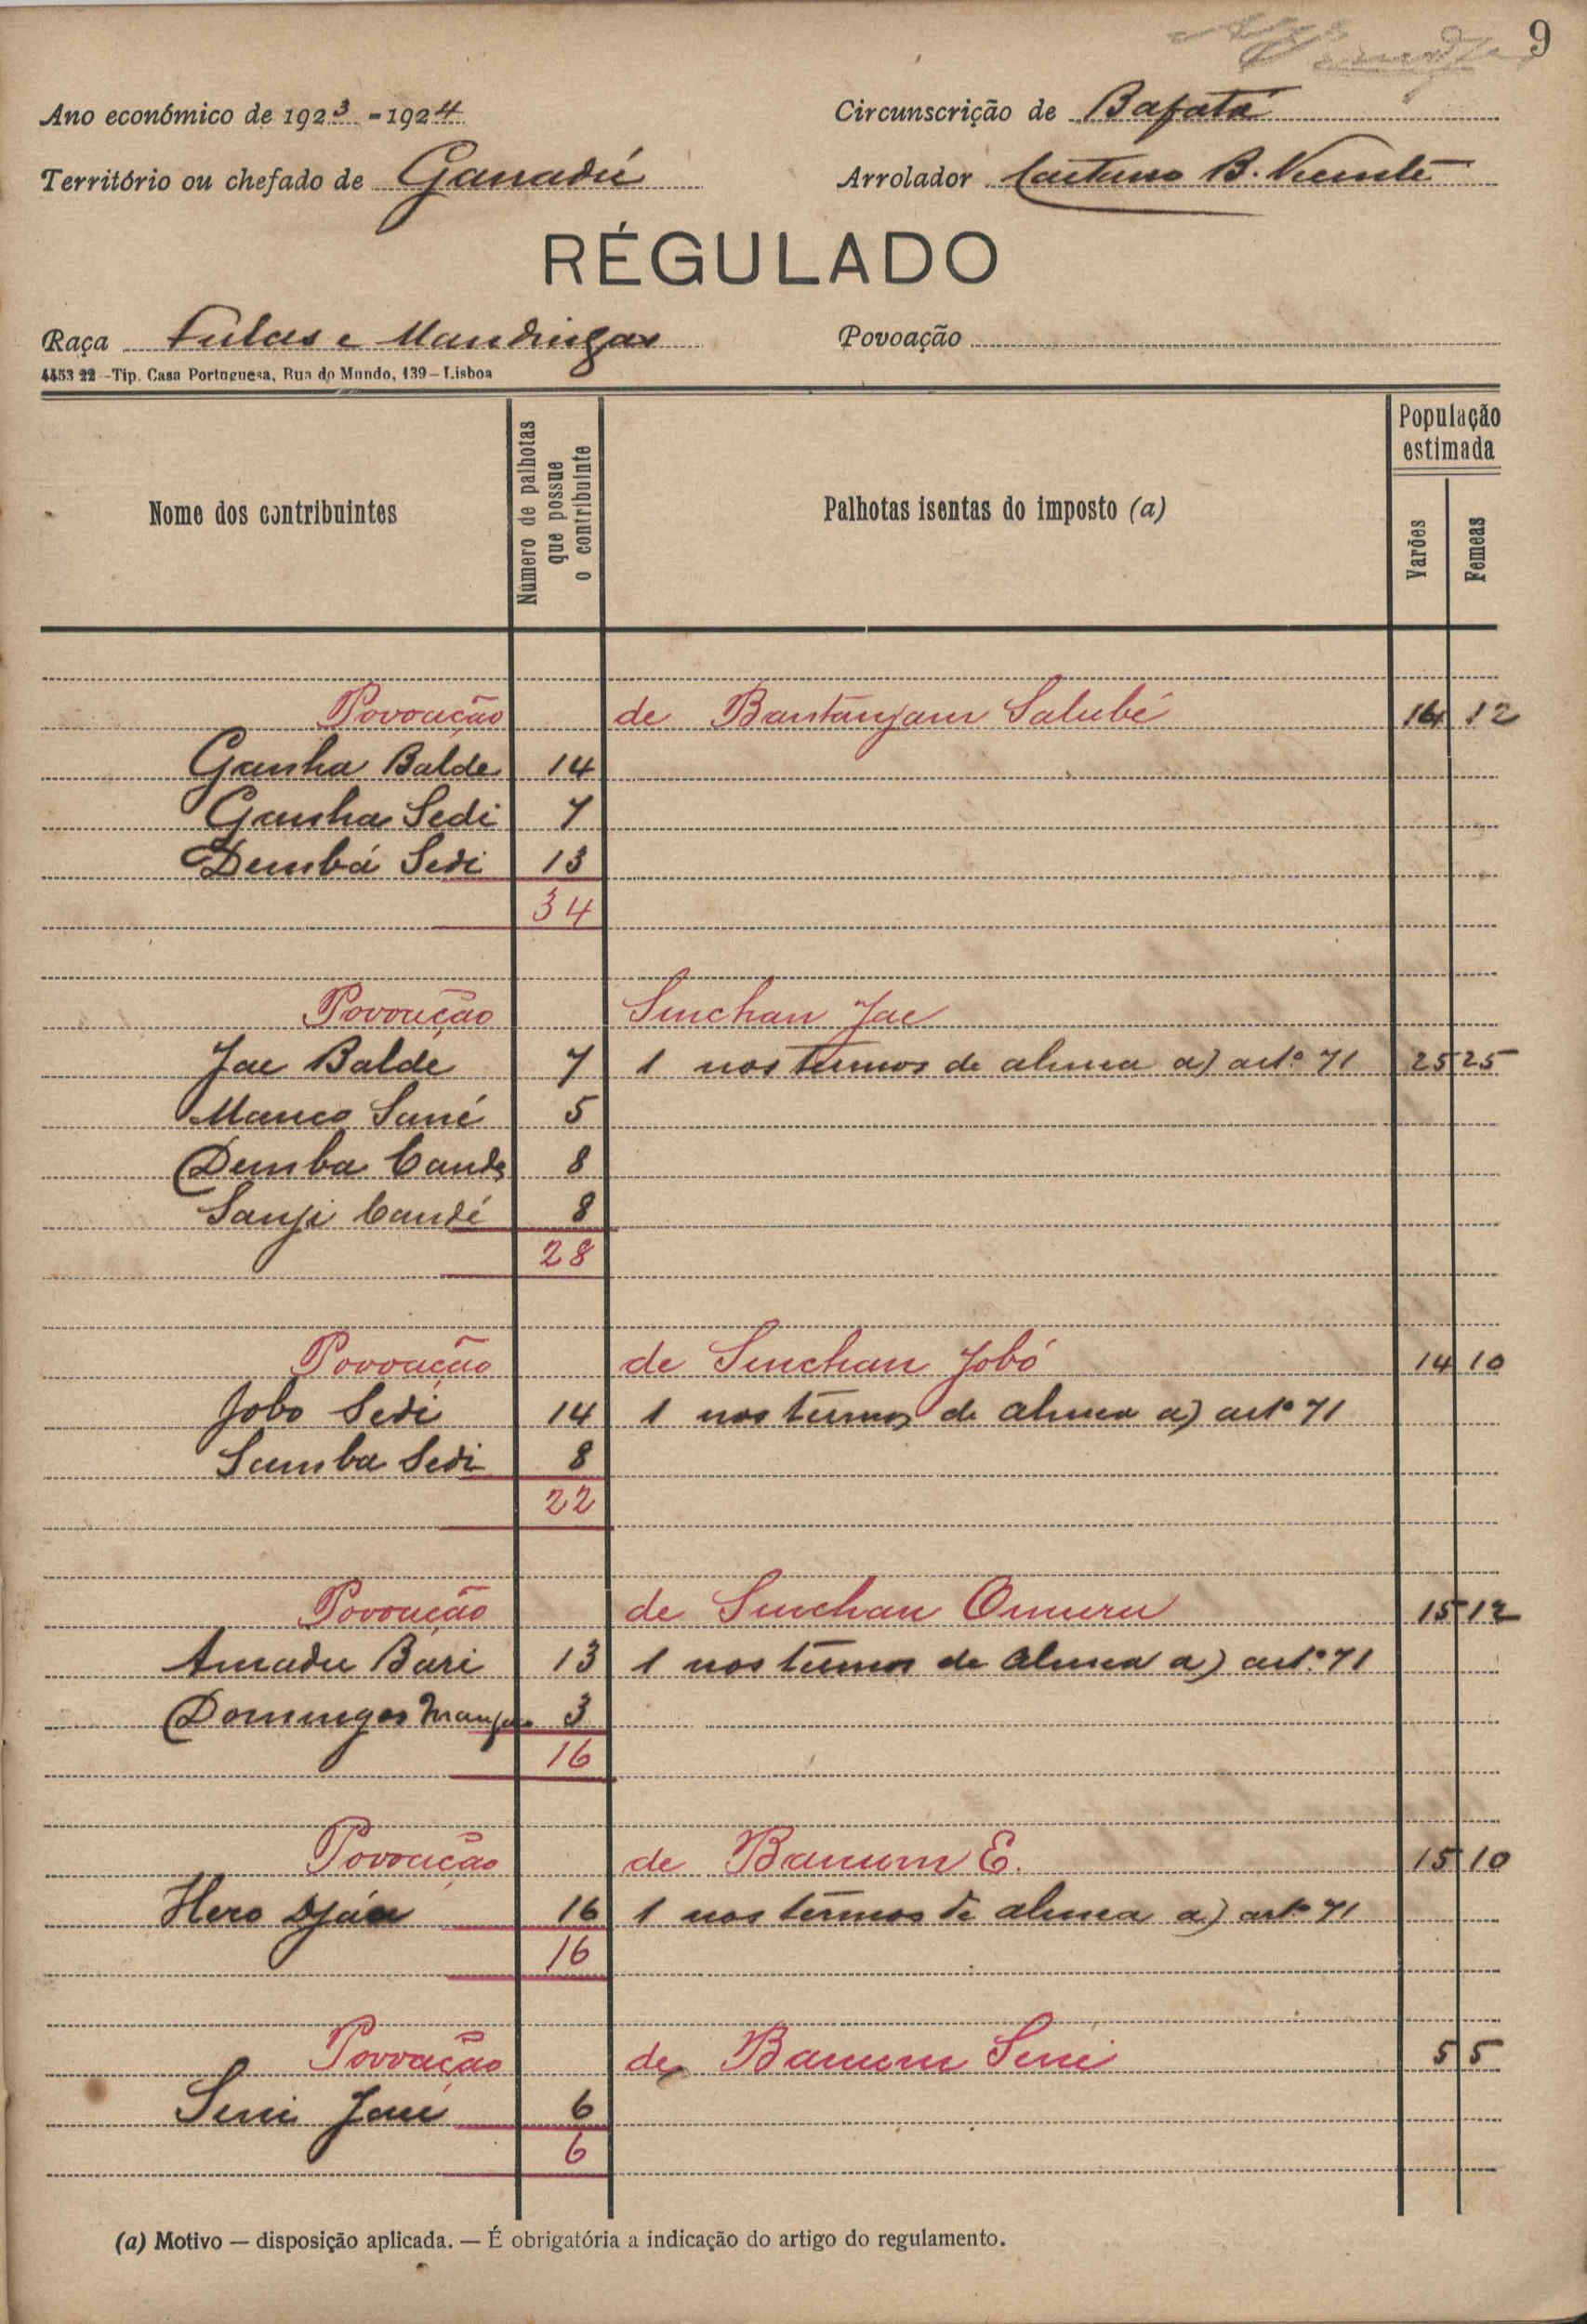 9
Ano económico de 1923-1924
Circunscrição de Bafatá
Território ou chefado de Ganadú
Arrolador Caetano B. Vicente
RÉGULADO
Raça Fulas e Mandingas
Povoação
4453 22 - Tip. Casa Portuguesa, Rua do Mundo, 139 - Lisboa
Nome dos contribuintes
Número de palhotas que possue o contribuinte
Palhotas isentas do imposto (a)
População estimada
Varões
Femeas
Povoação de Bantanjam Salubé 16 12
Gansha Balde 14
Gansha Sedi 7
Dembá Sedi 13
34
Povoação Sinchan Jae
Jae Baldé 7 1 nos termos de alinea a) artº 71 25 25
Manco Sané 5
Demba Cande 8
Sanji Candé 8
28
Povoação de Sinchan Jobó 14 10
Jobo Sedi 14 1 nos termos de alinea a) artº 71
Samba Sedi 8
22
Povoação de Sinchan Omuru 15 12
Amadu Bari 13 1 nos termos de alinea a) artº 71
Domingos 3
16
Povoação de Banum E. 15 10
Hero Djáu 16 1 nos termos de alinea a) artº 71
16
Povoação de Banum Seni 5 5
Seni Jau 6
6
(a) Motivo — disposição aplicada. — É obrigatória a indicação do artigo do regulamento.